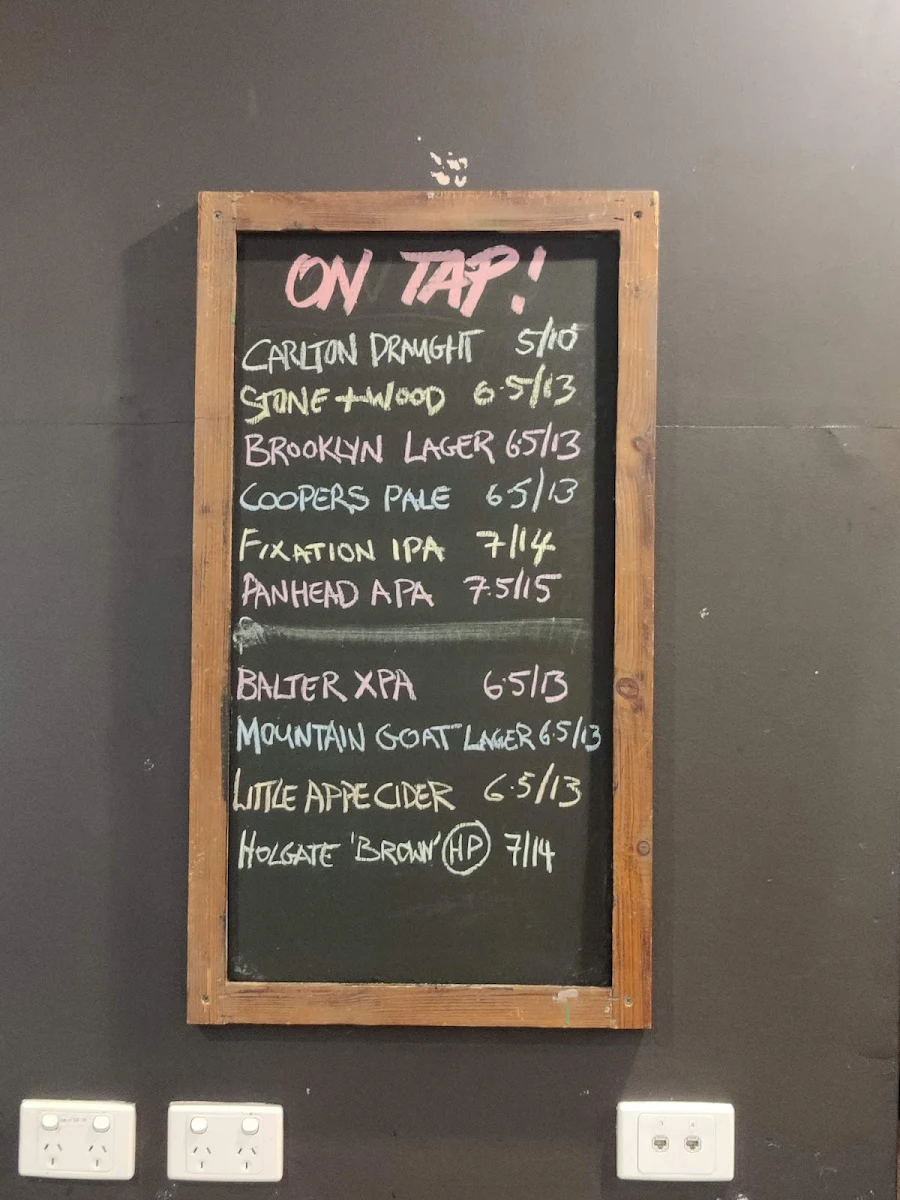 ON TAP!
CARLTON DRAUGHT 5/10
STONE + WOOD 6.5/13
BROOKLYN LAGER 6.5/13
COOPERS PALE 6.5/13
FIXATION IPA 7/14
PANHEAD APA 7.5/15
BALTER XPA 6.5/13
MOUNTAIN GOAT LAGER 6.5/13
LITTLE APPE CIDER 6.5/13
HOLGATE 'BROWN' HP 7/14